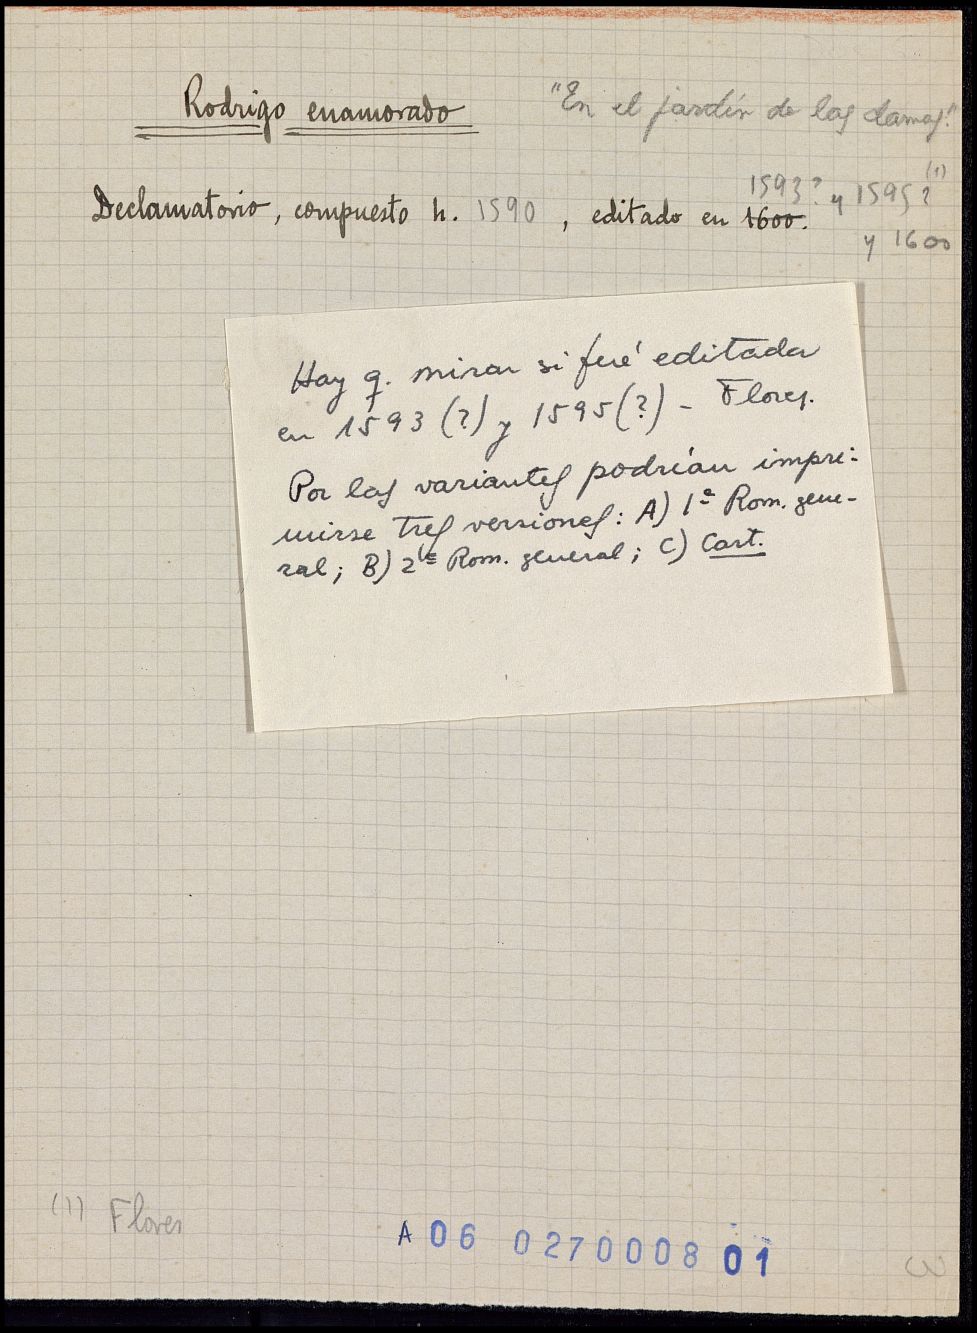 Rodrigo enamorado "En el jardín de las damas"
1593? y 1595? (1)
Declamatorio, compuesto h. 1590, editado en 1600.
y 1600
Hay q. mirar si fué editada
en 1593 (?) y 1595 (?) - Flores.
Por las variantes podrían impri-
mirse tres versiones: A) 1ª Rom. gene-
ral; B) 2ª Rom. general; C) Cart.
(1) Flores
A 06 0270008 01
3